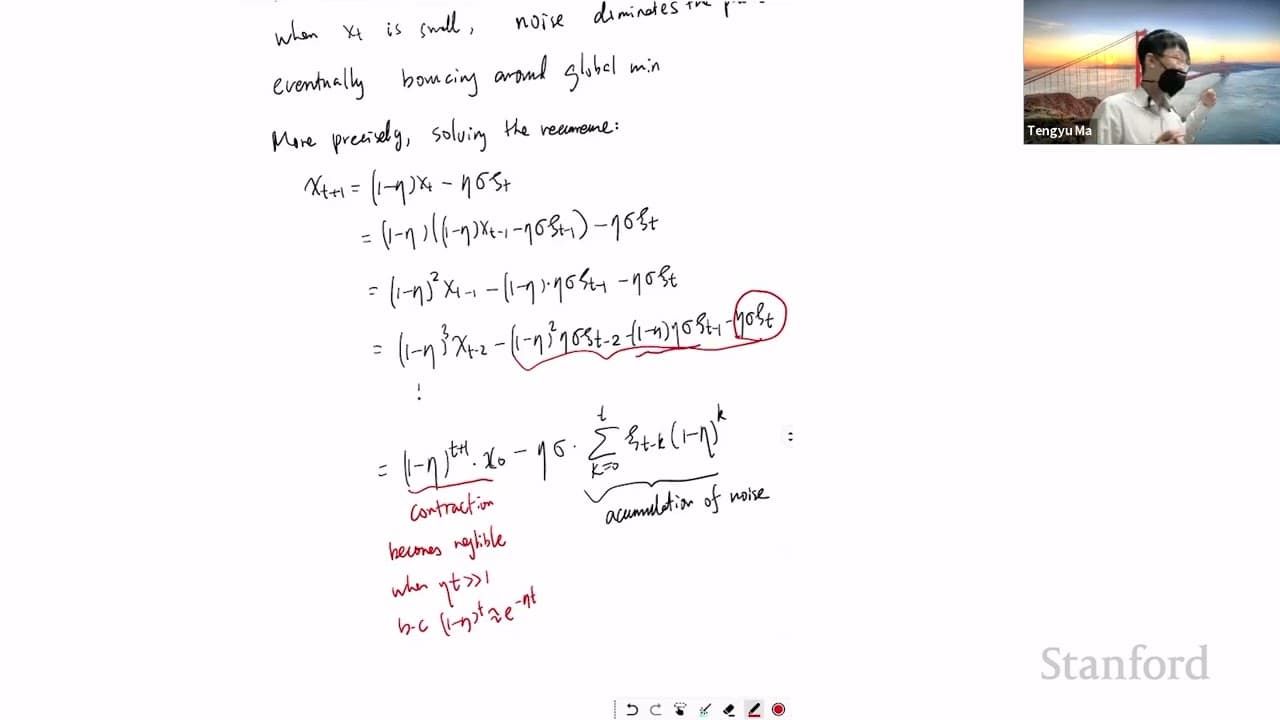 when xₜ is small, noise dominates the
eventually bouncing around global min
More precisely, solving the recurrence:
xₜ₊₁ = (1-η)xₜ - ησξₜ
= (1-η)((1-η)xₜ₋₁ - ησξₜ₋₁) - ησξₜ
= (1-η)² xₜ₋₁ - (1-η)·ησξₜ₋₁ - ησξₜ
= (1-η)³ xₜ₋₂ - (1-η)² ησξₜ₋₂ - (1-η)ησξₜ₋₁ - ησξₜ
⋮
= (1-η)ᵗ⁺¹ · x₀ - ησ · ∑ₖ₌₀ᵗ ξₜ₋ₖ (1-η)ᵏ =
contraction
acumulation of noise
becomes neglible
when ηt >> 1
b.c (1-η)ᵗ ≈ e^{-ηt}
Tengyu Ma
Stanford